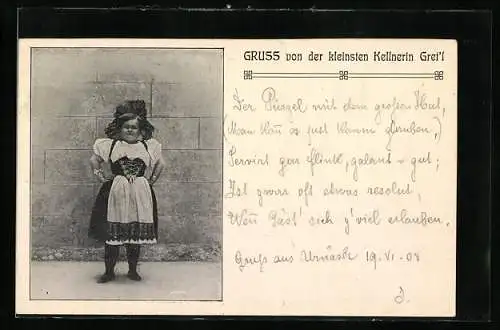 GRUSS von der kleinsten Kellnerin Gret'l
Der Pürzel mit dem großen Hut,
(Man kañ es just kaum glauben,)
Servirt gar flink, galant & gut;
Ist zwar oft etwas resolut,
Weñ Gäst' sich z'viel erlauben.
Gruß aus Urnäsch 19. VI. 08
J.